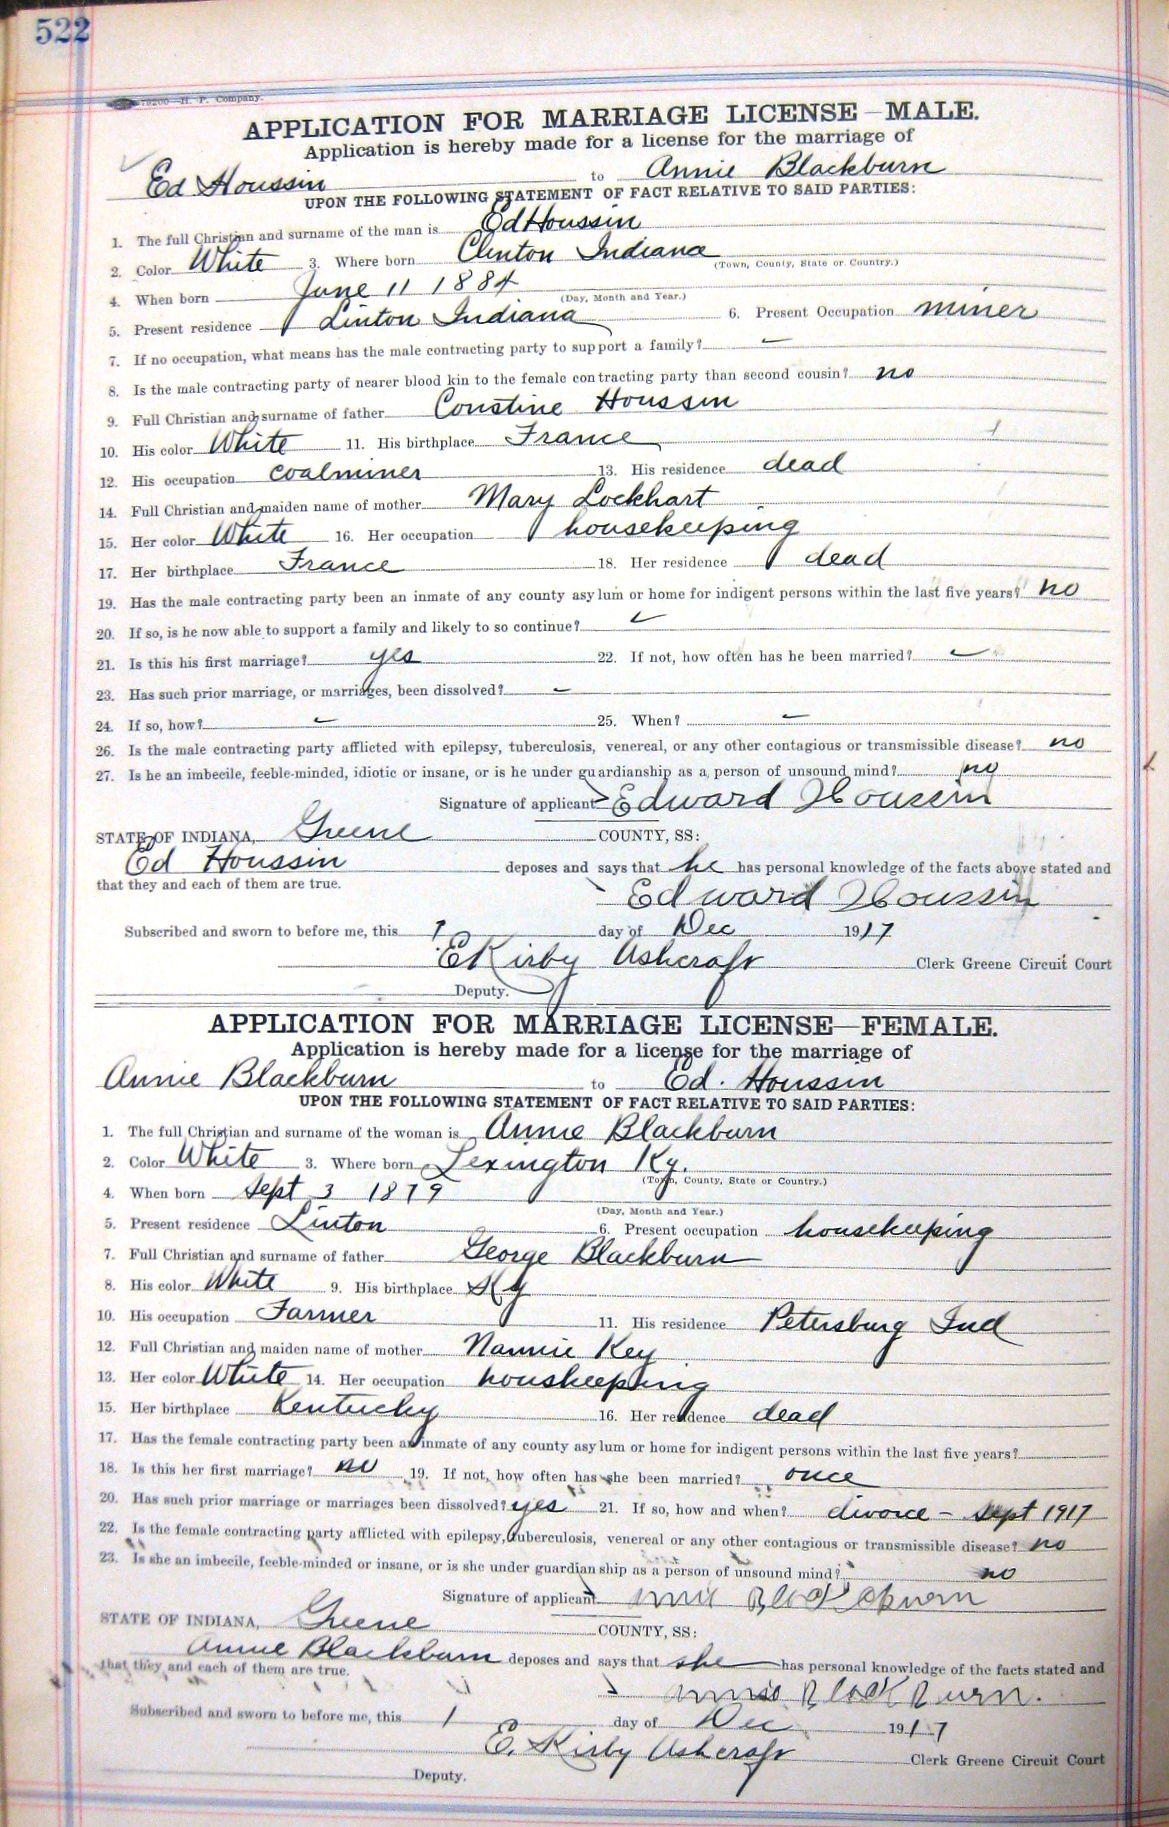 522
79200—H. P. Company.
APPLICATION FOR MARRIAGE LICENSE—MALE.
Application is hereby made for a license for the marriage of
Ed Houssin to Annie Blackburn
UPON THE FOLLOWING STATEMENT OF FACT RELATIVE TO SAID PARTIES:
1. The full Christian and surname of the man is Ed Houssin
2. Color White 3. Where born Clinton Indiana
(Town, County, State or Country.)
4. When born June 11 1884
(Day, Month and Year.)
5. Present residence Linton Indiana 6. Present Occupation miner
7. If no occupation, what means has the male contracting party to support a family?
8. Is the male contracting party of nearer blood kin to the female contracting party than second cousin? no
9. Full Christian and surname of father Constine Houssin
10. His color White 11. His birthplace France
12. His occupation coalminer 13. His residence dead
14. Full Christian and maiden name of mother Mary Lockhart
15. Her color White 16. Her occupation housekeeping
17. Her birthplace France 18. Her residence dead
19. Has the male contracting party been an inmate of any county asylum or home for indigent persons within the last five years? no
20. If so, is he now able to support a family and likely to so continue?
21. Is this his first marriage? yes 22. If not, how often has he been married?
23. Has such prior marriage, or marriages, been dissolved?
24. If so, how? 25. When?
26. Is the male contracting party afflicted with epilepsy, tuberculosis, venereal, or any other contagious or transmissible disease? no
27. Is he an imbecile, feeble-minded, idiotic or insane, or is he under guardianship as a person of unsound mind? no
Signature of applicant Edward Houssin
STATE OF INDIANA, Greene COUNTY, SS:
Ed Houssin deposes and says that he has personal knowledge of the facts above stated and
that they and each of them are true.
Edward Houssin
Subscribed and sworn to before me, this 1 day of Dec 1917
E Kirby Ashcraft Clerk Greene Circuit Court
Deputy.
APPLICATION FOR MARRIAGE LICENSE—FEMALE.
Application is hereby made for a license for the marriage of
Annie Blackburn to Ed. Houssin
UPON THE FOLLOWING STATEMENT OF FACT RELATIVE TO SAID PARTIES:
1. The full Christian and surname of the woman is Annie Blackburn
2. Color White 3. Where born Lexington Ky.
(Town, County, State or Country.)
4. When born Sept 3 1879
(Day, Month and Year.)
5. Present residence Linton 6. Present occupation housekeeping
7. Full Christian and surname of father George Blackburn
8. His color White 9. His birthplace Ky
10. His occupation Farmer 11. His residence Petersburg Ind
12. Full Christian and maiden name of mother Nannie Key
13. Her color White 14. Her occupation houskeeping
15. Her birthplace Kentucky 16. Her residence dead
17. Has the female contracting party been an inmate of any county asylum or home for indigent persons within the last five years?
18. Is this her first marriage? no 19. If not, how often has she been married? once
20. Has such prior marriage or marriages been dissolved? yes 21. If so, how and when? divorce - Sept 1917
22. Is the female contracting party afflicted with epilepsy, tuberculosis, venereal or any other contagious or transmissible disease? no
23. Is she an imbecile, feeble-minded or insane, or is she under guardianship as a person of unsound mind? no
Signature of applicant Annie Blackburn
STATE OF INDIANA, Greene COUNTY, SS:
Annie Blackburn deposes and says that she has personal knowledge of the facts stated and
that they and each of them are true.
Annie Blackburn.
Subscribed and sworn to before me, this 1 day of Dec 1917
E. Kirby Ashcraft Clerk Greene Circuit Court
Deputy.